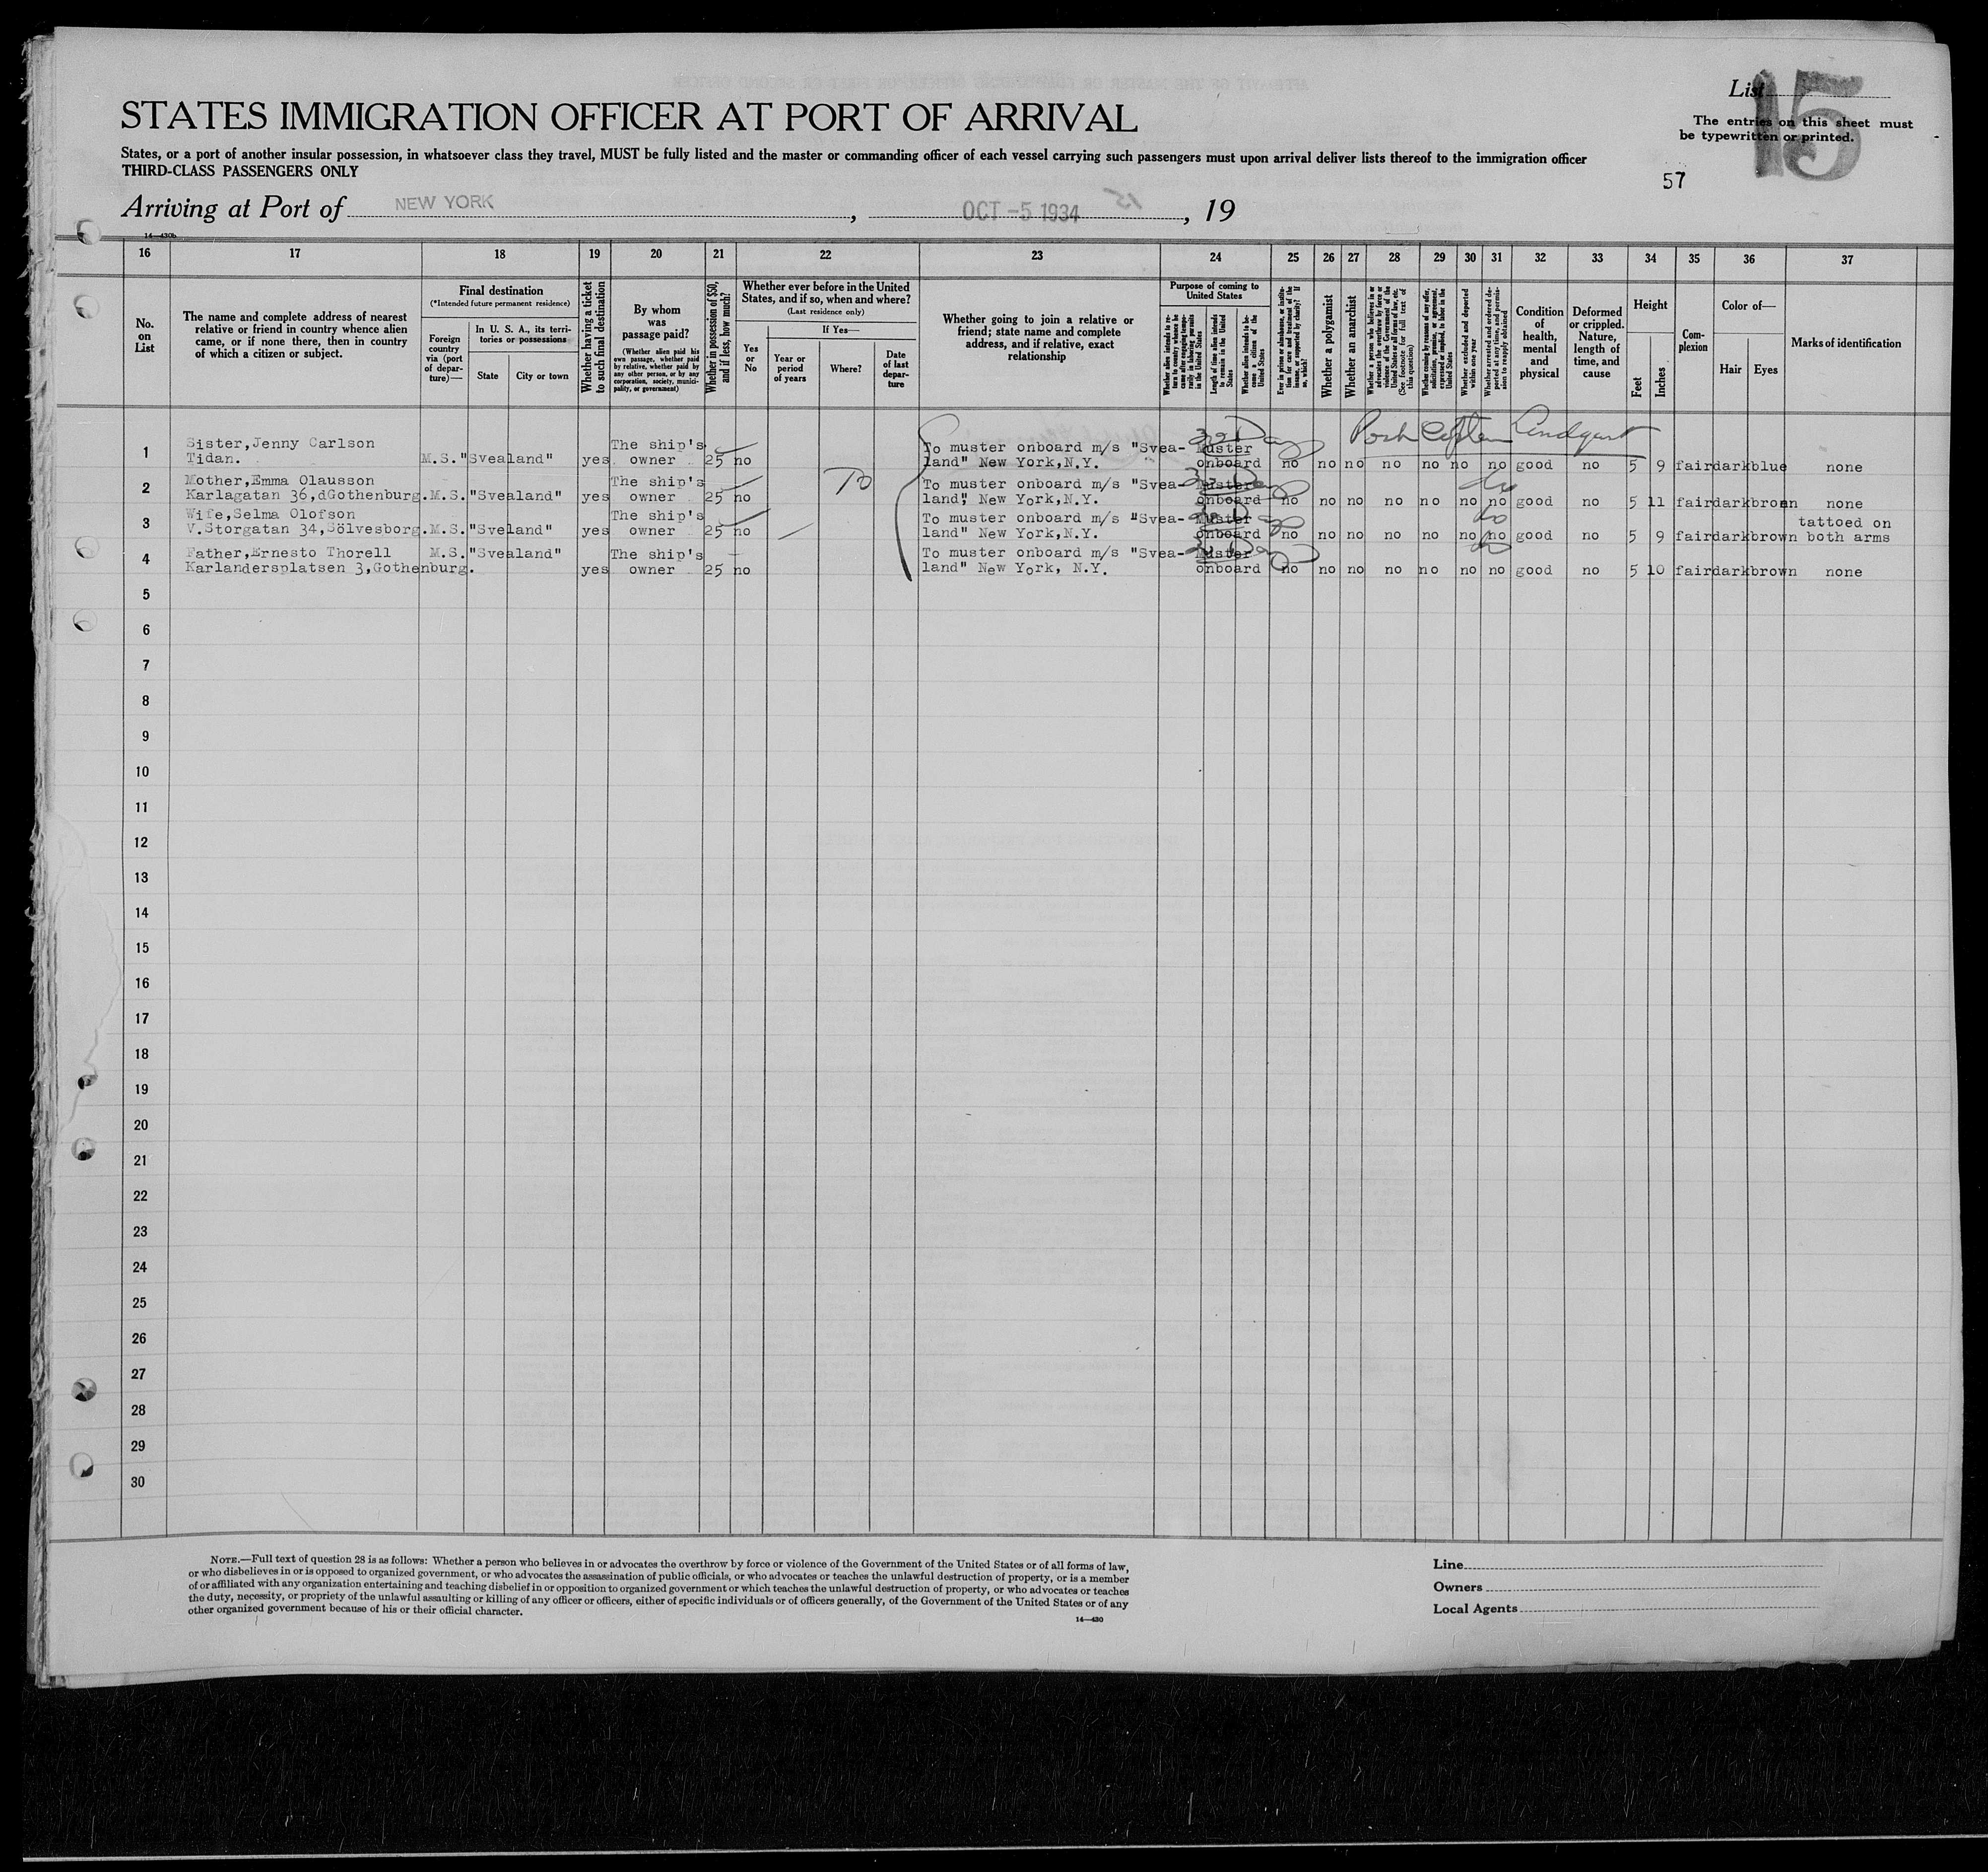 List 15
STATES IMMIGRATION OFFICER AT PORT OF ARRIVAL
The entries on this sheet must
be typewritten or printed.
States, or a port of another insular possession, in whatsoever class they travel, MUST be fully listed and the master or commanding officer of each vessel carrying such passengers must upon arrival deliver lists thereof to the immigration officer
THIRD-CLASS PASSENGERS ONLY
57
Arriving at Port of NEW YORK, OCT -5 1934, 19
14—430b
16 17 18 19 20 21 22 23 24 25 26 27 28 29 30 31 32 33 34 35 36 37
No. on List
The name and complete address of nearest relative or friend in country whence alien came, or if none there, then in country of which a citizen or subject.
Final destination
(*Intended future permanent residence)
Foreign country via (port of departure)—
In U. S. A., its territories or possessions
State
City or town
Whether having a ticket to such final destination
By whom was passage paid?
(Whether alien paid his own passage, whether paid by relative, whether paid by any other person, or by any corporation, society, municipality, or government)
Whether in possession of $50, and if less, how much?
Whether ever before in the United States, and if so, when and where?
(Last residence only)
Yes or No
If Yes—
Year or period of years
Where?
Date of last departure
Whether going to join a relative or friend; state name and complete address, and if relative, exact relationship
Purpose of coming to United States
Whether alien intends to return to country whence he came after engaging temporarily in laboring pursuits in the United States
Length of time alien intends to remain in the United States
Whether alien intends to become a citizen of the United States
Ever in prison or almshouse, or institution for care and treatment of the insane, or supported by charity? If so, which?
Whether a polygamist
Whether an anarchist
Whether a person who believes in or advocates the overthrow by force or violence of the Government of the United States or all forms of law, etc. (See footnote for full text of this question)
Whether coming by reasons of any offer, solicitation, promise, or agreement, express or implied, to labor in the United States
Whether excluded and deported within one year
Whether arrested and ordered deported at any time, and permission to reapply obtained
Condition of health, mental and physical
Deformed or crippled. Nature, length of time, and cause
Height
Feet
Inches
Complexion
Color of—
Hair
Eyes
Marks of identification
1 Sister,Jenny Carlson The ship's To muster onboard m/s "Svea- Muster
Tidan. M.S."Svealand" yes owner 25 no land" New York,N.Y. onboard no no no no no no no good no 5 9 fair dark blue none
2 Mother,Emma Olausson The ship's To muster onboard m/s "Svea- Muster
Karlagatan 36,dGothenburg. M.S."Svealand" yes owner 25 no land", New York,N.Y. onboard no no no no no no no good no 5 11 fair dark broen none
3 Wife,Selma Olofson The ship's To muster onboard m/s "Svea- Muster tattoed on
V.Storgatan 34,Sölvesborg. M.S."Sveland" yes owner 25 no land" New York,N.Y. onboard no no no no no no no good no 5 9 fair dark brown both arms
4 Father,Ernesto Thorell M.S."Svealand" The ship's To muster onboard m/s "Svea- Muster
Karlandersplatsen 3,Gothenburg. yes owner 25 no land" New York, N.Y. onboard no no no no no no no good no 5 10 fair dark brown none
5
6
7
8
9
10
11
12
13
14
15
16
17
18
19
20
21
22
23
24
25
26
27
28
29
30
NOTE.—Full text of question 28 is as follows: Whether a person who believes in or advocates the overthrow by force or violence of the Government of the United States or of all forms of law,
or who disbelieves in or is opposed to organized government, or who advocates the assassination of public officials, or who advocates or teaches the unlawful destruction of property, or is a member
of or affiliated with any organization entertaining and teaching disbelief in or opposition to organized government or which teaches the unlawful destruction of property, or who advocates or teaches
the duty, necessity, or propriety of the unlawful assaulting or killing of any officer or officers, either of specific individuals or of officers generally, of the Government of the United States or of any
other organized government because of his or their official character.
14—430
Line
Owners
Local Agents